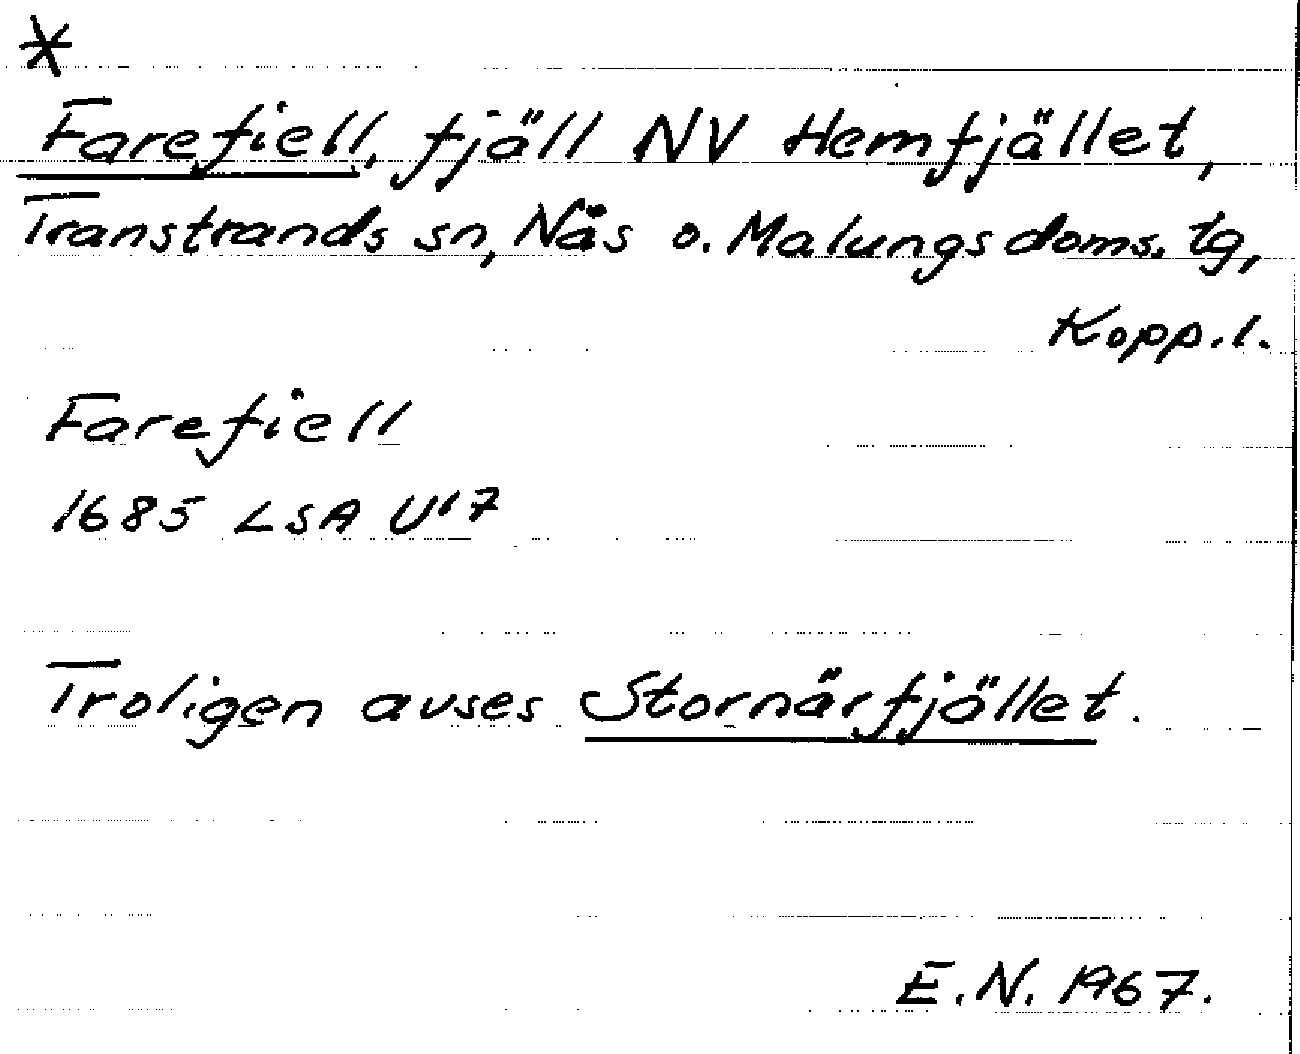 *
Farefiell, fjäll NV Hemfjället,
Transtrands sn, Nås o. Malungs doms. tg,
Kopp. l.
Farefiell
1685 LSA U'7
Troligen avses Stornärfjället.
E.N. 1967.